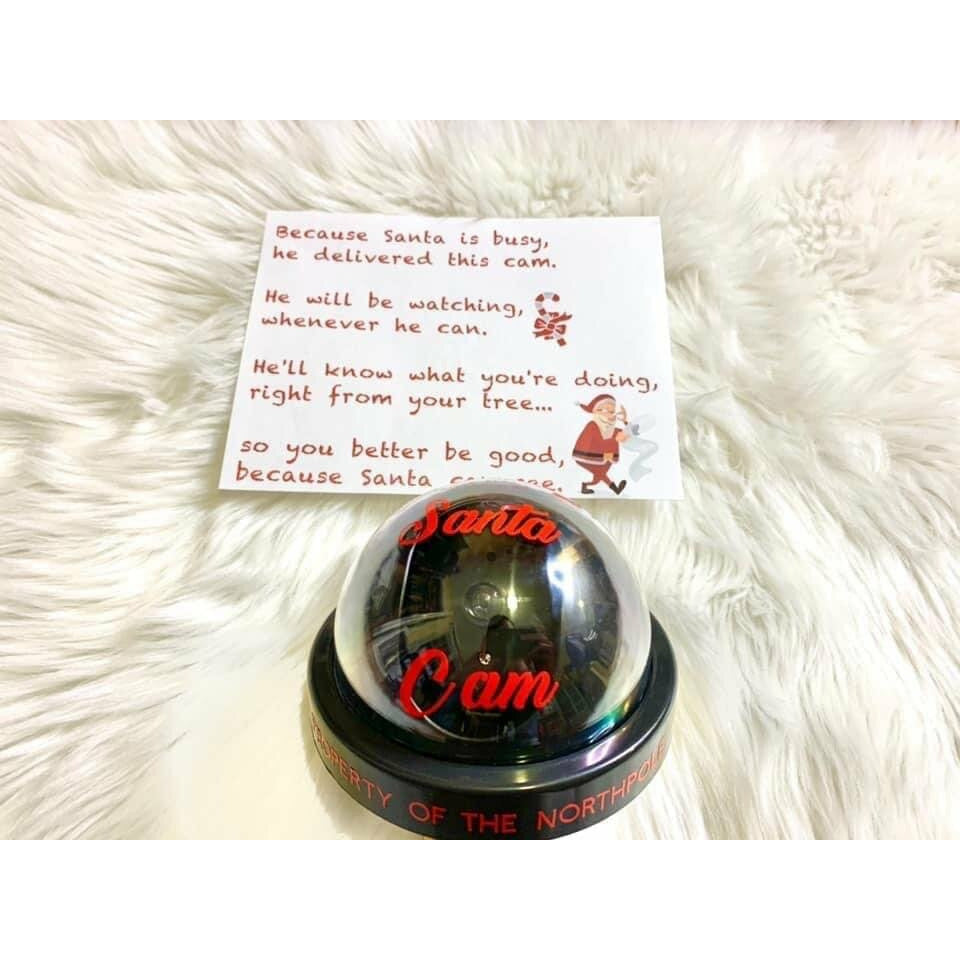 Because Santa is busy,
he delivered this cam.
He will be watching,
whenever he can.
He'll know what you're doing,
right from your tree...
so you better be good,
because Santa
Santa
Cam
PROPERTY OF THE NORTHPOLE